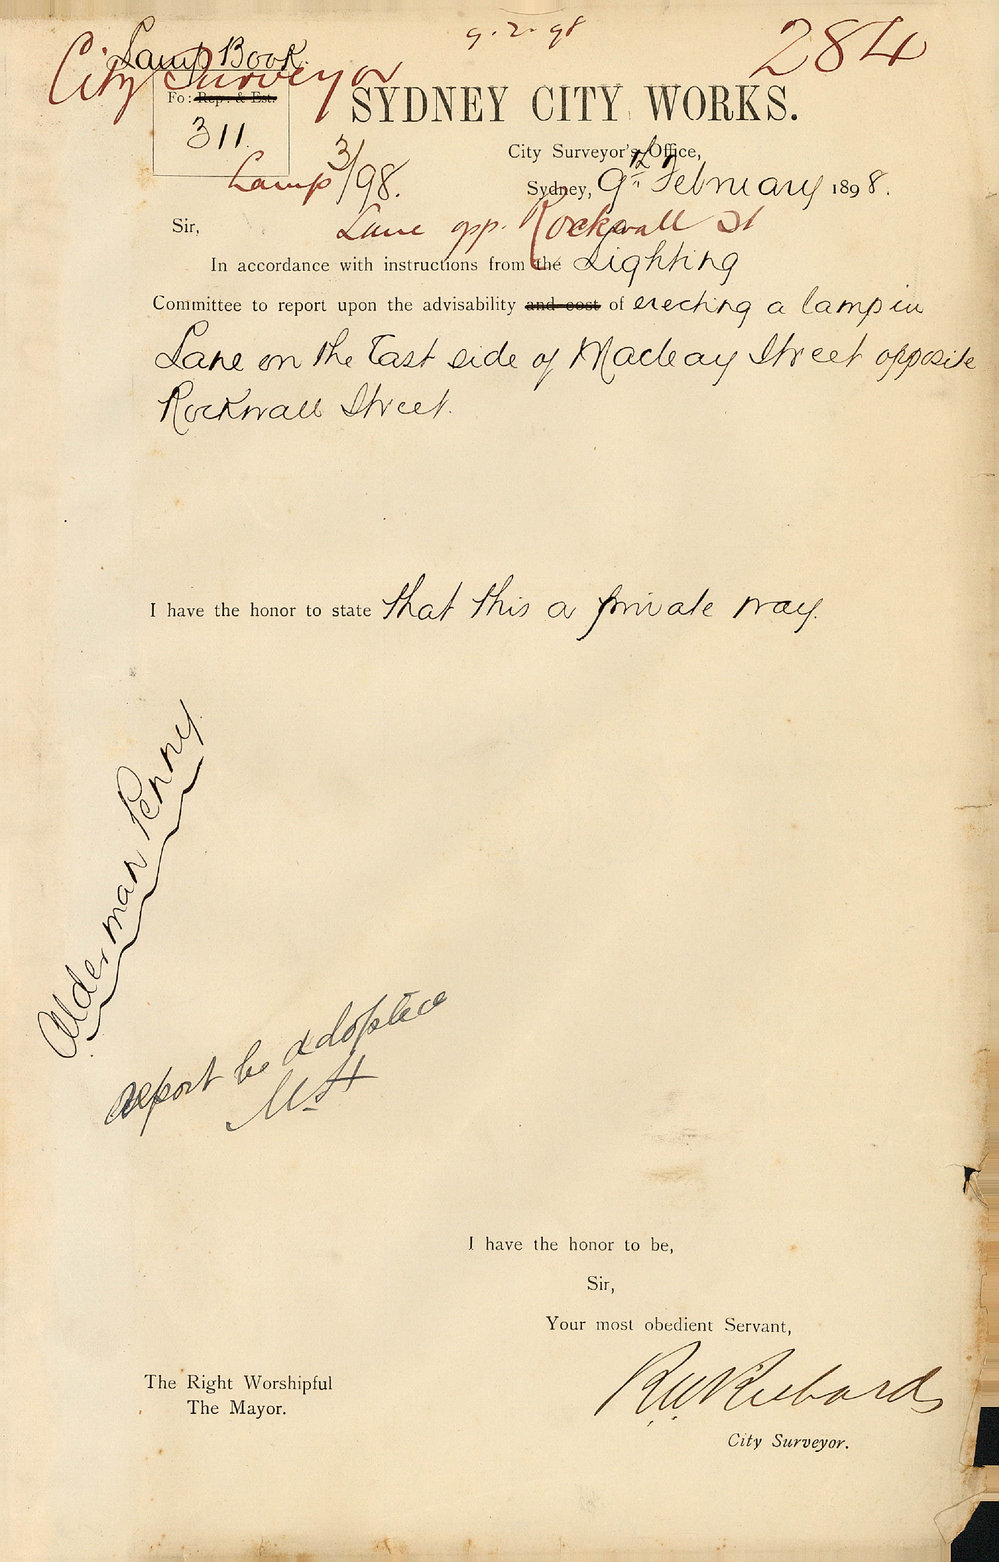 9.2.98
284
Lamp Book.
City Surveyor
Fo: Rep. & Est.
311.
SYDNEY CITY WORKS.
City Surveyor's Office,
Lamp 3/98.
Sydney, 9th February 1898.
Sir,
Lane opp. Rockwall St
In accordance with instructions from the Lighting
Committee to report upon the advisability and cost of erecting a lamp in
Lane on the East side of Macleay Street opposite
Rockwall Street.
I have the honor to state that this a private way.
Alderman Penny
Report be adopted
I have the honor to be,
Sir,
Your most obedient Servant,
The Right Worshipful
The Mayor.
R W Richards
City Surveyor.